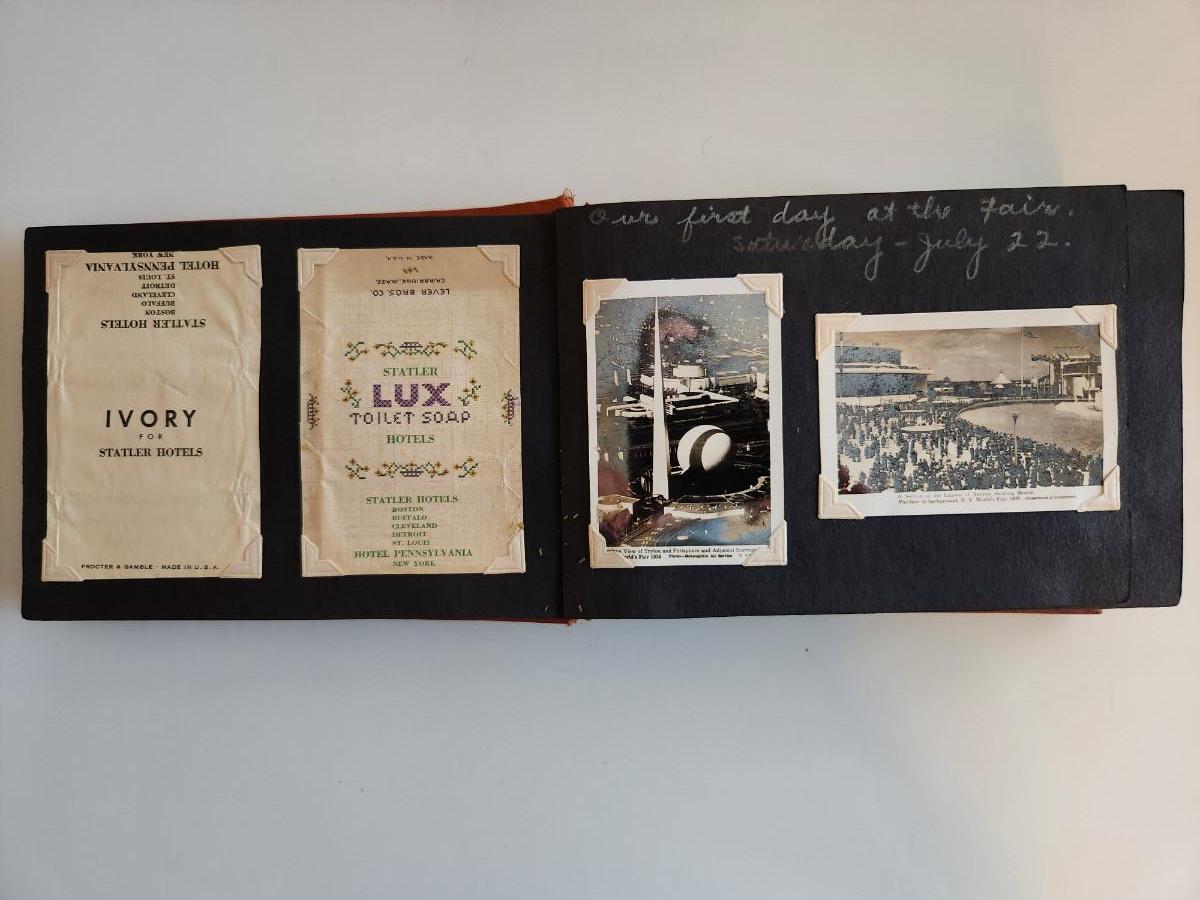 HOTEL PENNSYLVANIA
NEW YORK
ST. LOUIS
DETROIT
CLEVELAND
BUFFALO
BOSTON
STATLER HOTELS
IVORY
FOR
STATLER HOTELS
PROCTER & GAMBLE - MADE IN U.S.A.
MADE IN U.S.A.
CAMBRIDGE, MASS.
LEVER BROS. CO.
STATLER
LUX
TOILET SOAP
HOTELS
STATLER HOTELS
BOSTON
BUFFALO
CLEVELAND
DETROIT
ST. LOUIS
HOTEL PENNSYLVANIA
NEW YORK
Our first day at the Fair.
Saturday - July 22.
View of Trylon and Perisphere and Adjacent
World's Fair 1939 Photo-McLaughlin Air Service
A Section of the Lagoon of Nations showing British
Pavilion in background, N. Y. World's Fair 1939 -Underwood & Underwood